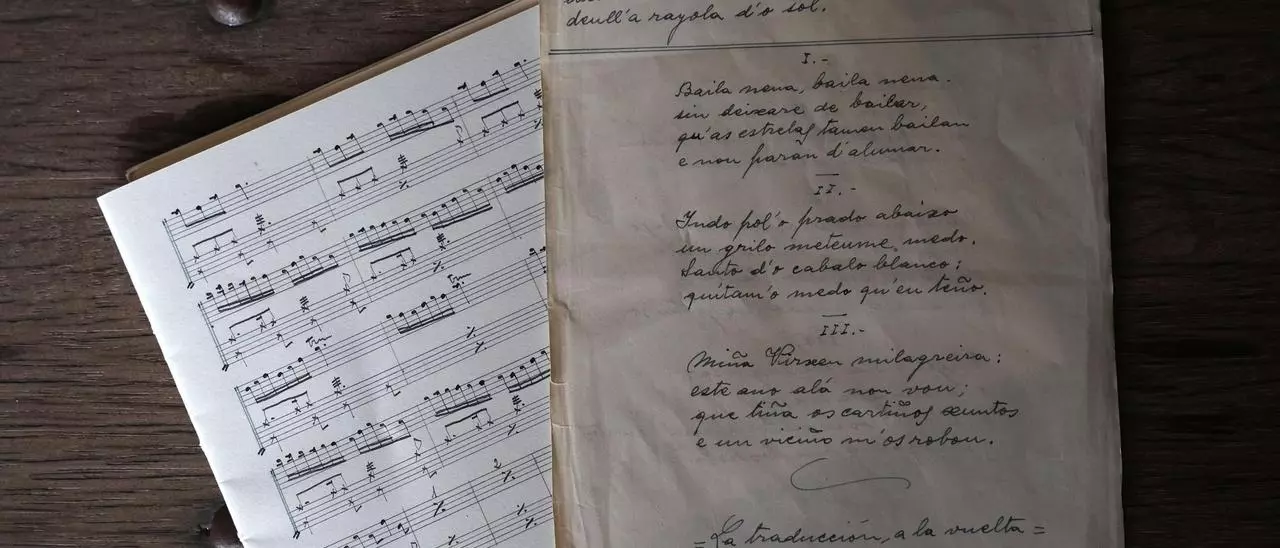 deull'a rayola d'o sol.
I.-
Baila nena, baila nena.
sin deixare de bailar,
qu'as estrelas tamen bailan
e non paran d'alumar.
II.-
Indo pol'o prado abaixo
un grilo meteume medo.
Santo d'o cabalo blanco:
quitam'o medo qu'eu teño.
III.-
Miña Virxen milagreira:
este ano alá non vou;
que tiña os cartiños xuntos
e un viciño m'os robou.
=La traducción, a la vuelta=